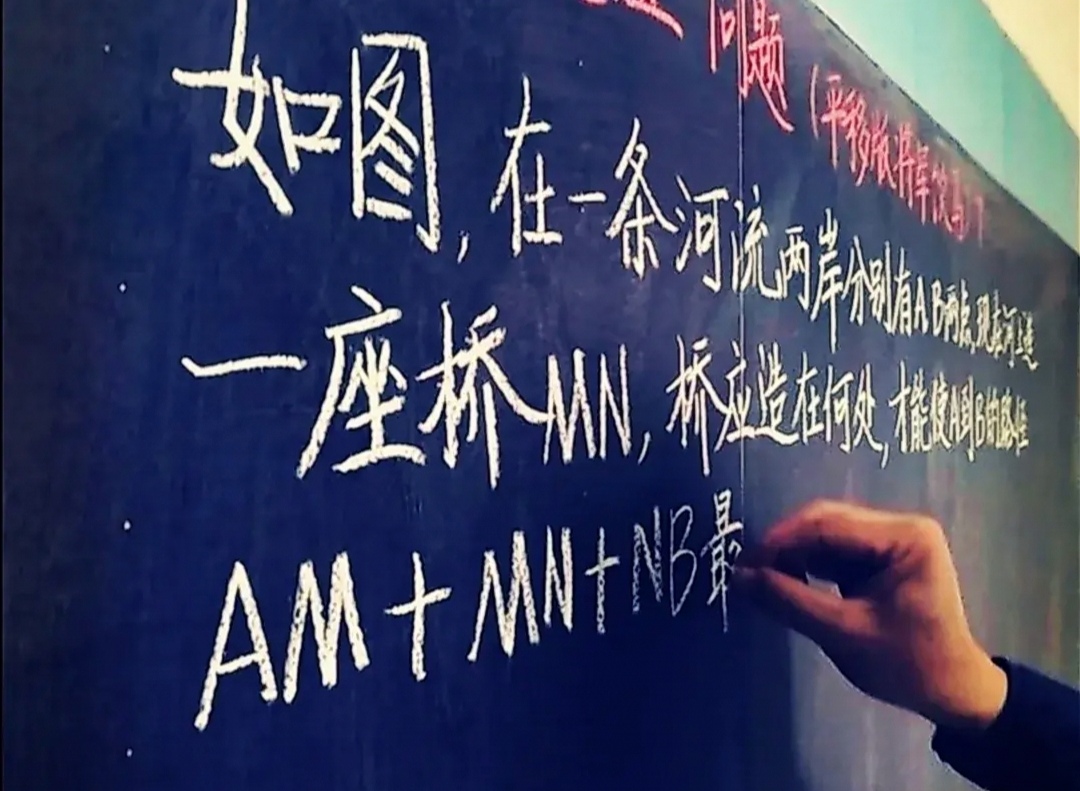 问题(平移版将军饮马)
如图,在一条河流两岸分别有A、B两点,现在河上造
一座桥MN,桥应造在何处,才能使A到B的路径
AM+MN+NB最